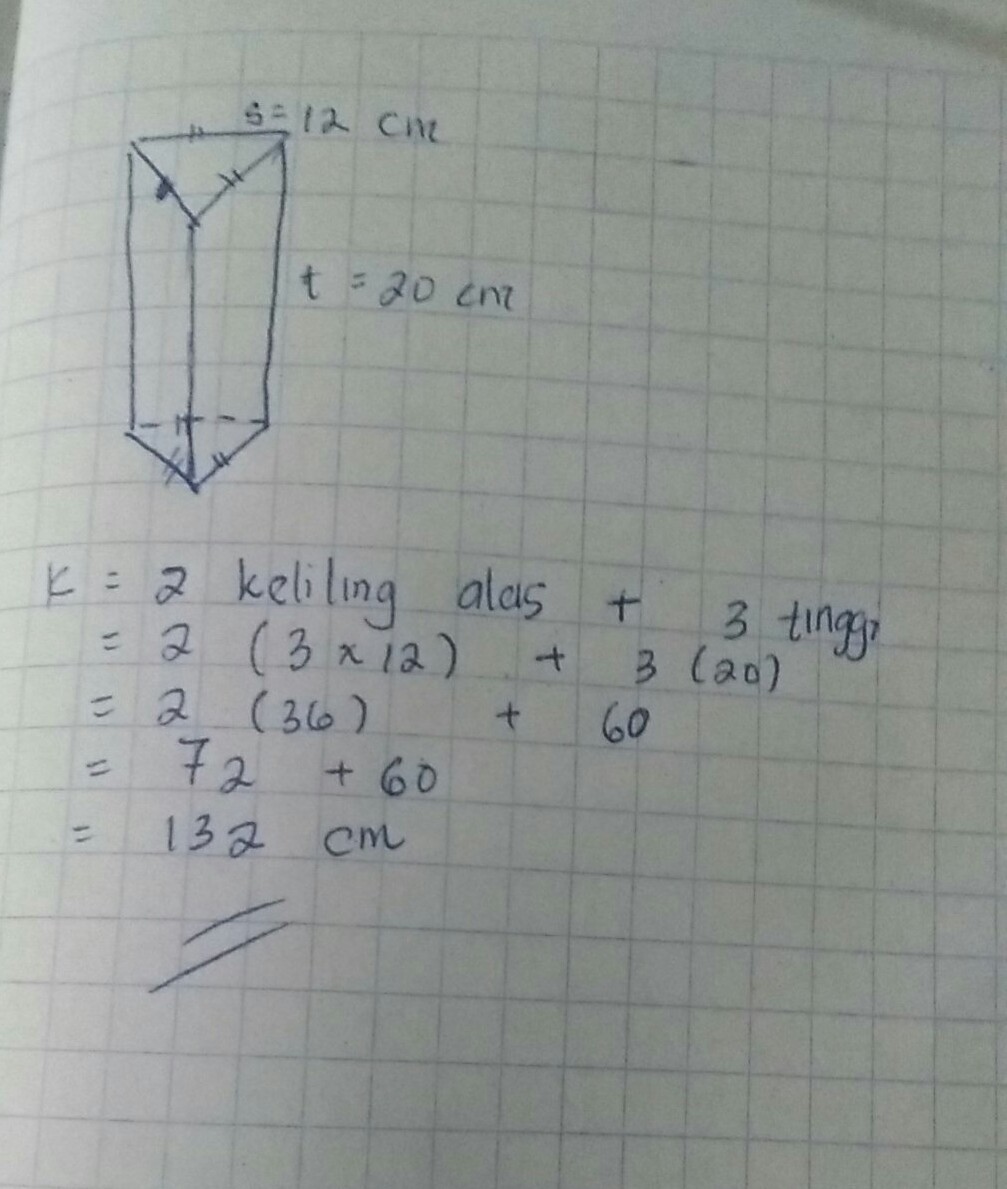 s = 12 cm
t = 20 cm
K = 2 keliling alas + 3 tinggi
= 2 (3 x 12) + 3 (20)
= 2 (36) + 60
= 72 + 60
= 132 cm